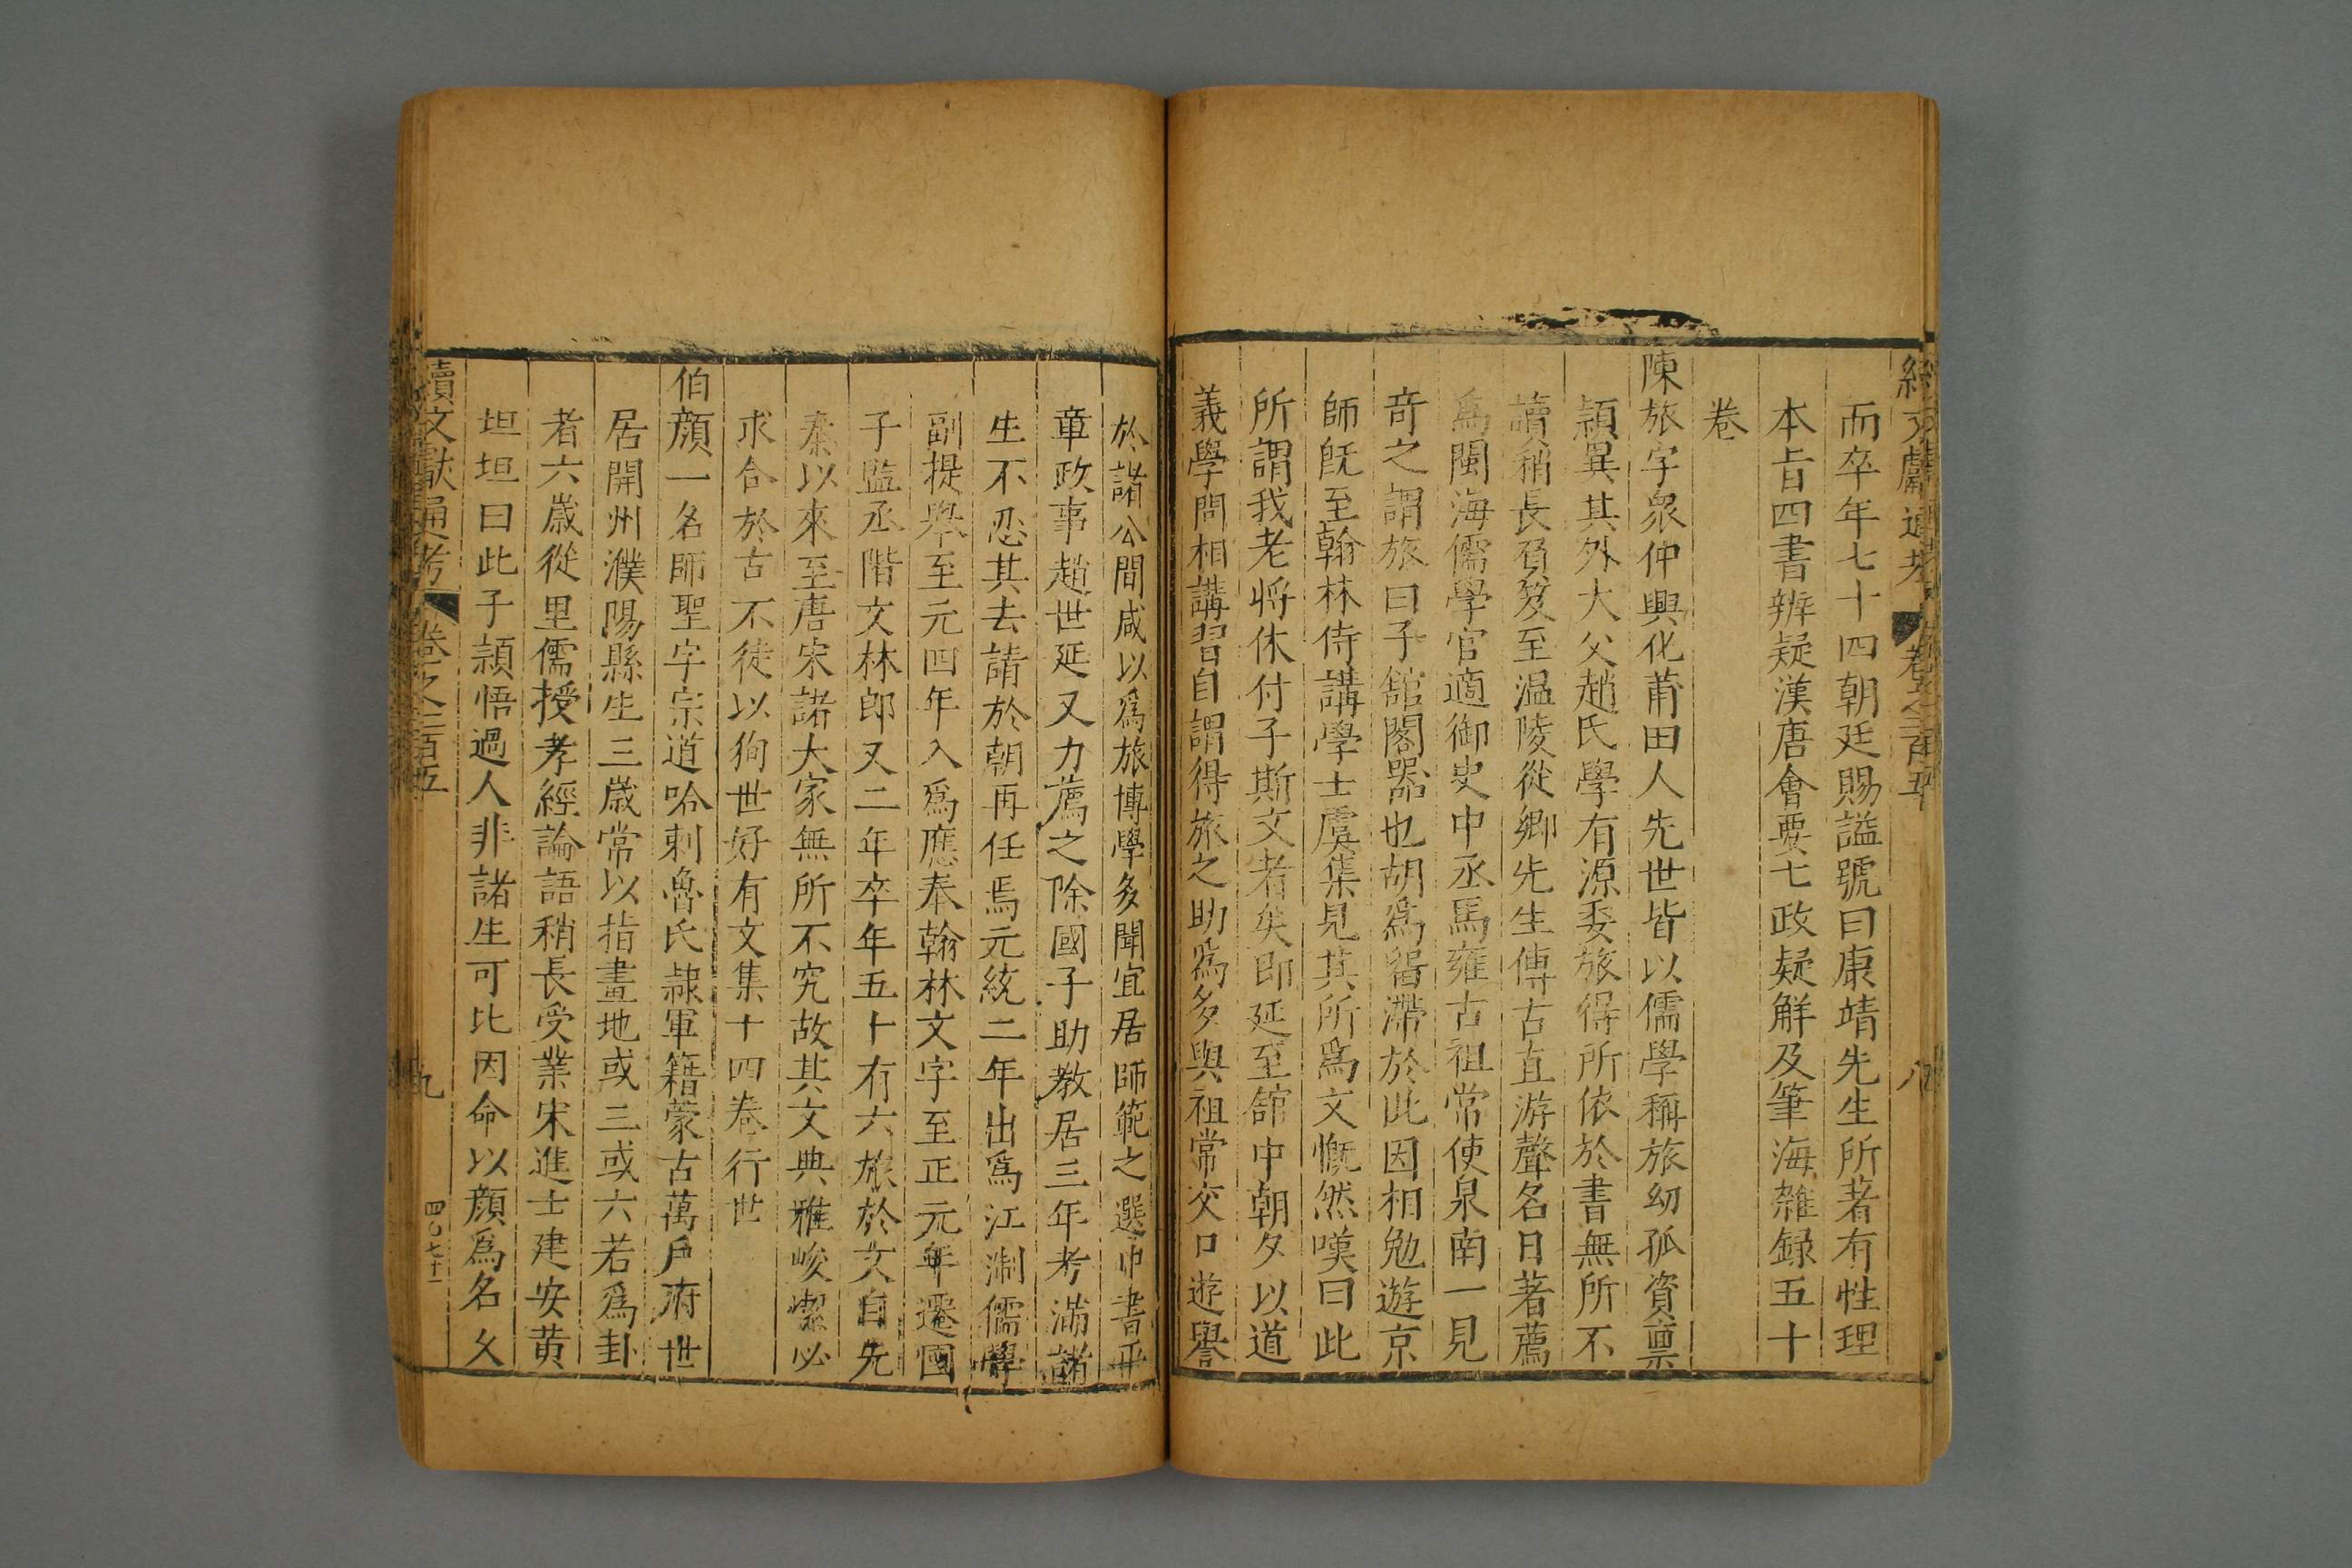 續文獻通考 卷之二百五 八
而卒年七十四朝廷賜謚號曰康靖先生所著有性理
本旨四書辨疑漢唐會要七政疑解及筆海雜録五十
卷
陳旅字衆仲興化莆田人先世皆以儒學稱旅幼孤資禀
穎異其外大父趙氏學有源委旅得所依於書無所不
讀稍長負笈至温陵從鄉先生傅古直游聲名日著薦
爲閩海儒學官適御史中丞馬雍古祖常使泉南一見
竒之謂旅曰子舘閣器也胡爲留滯於此因相勉遊京
師旣至翰林侍講學士虞集見其所爲文慨然嘆曰此
所謂我老將休付子斯文者矣即延至舘中朝夕以道
義學問相講習自謂得旅之助爲多與祖常交口遊譽
於諸公間咸以爲旅博學多聞宜居師範之選中書平
章政事趙世延又力薦之除國子助教居三年考滿諸
生不忍其去請於朝再任焉元統二年出爲江淛儒學
副提舉至元四年入爲應奉翰林文字至正元年遷國
子監丞階文林郎又二年卒年五十有六旅於文自先
秦以來至唐宋諸大家無所不究故其文典雅峻潔必
求合於古不徒以狥世好有文集十四卷行世
伯顔一名師聖字宗道哈剌魯氏隷軍籍蒙古萬戶府世
居開州濮陽縣生三歲常以指畫地或三或六若爲卦
者六歲從里儒授孝經論語稍長受業宋進士建安黄
坦坦曰此子穎悟過人非諸生可比因命以顔爲名久
續文獻通考 卷之二百五 九